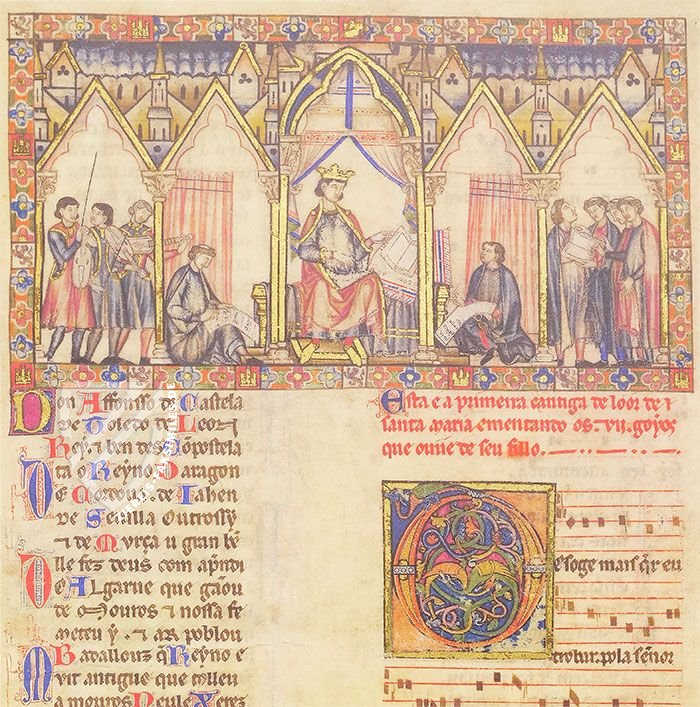 Don Affonsso de Castela
de Toledo de Leon
Rey. ⁊ ben des Conpostela
ta o Reyno Daragon
De Cordoua. de Iahen
de Seuilla Outrossy
⁊ de Murça u gran bẽ
lle fez deus com apndi
Do Algarue que gãou
de Mouros ⁊ nossa fe
meteu y. ⁊ ar poblou
Badallouz q̃ Reyno e
Muit antigue que tolleu
a mouros Neule Xerez
Esta e a primeira cantiga de loor de
santa Maria ementando os. vij. goyos
que ouue de seu fillo.
Desoge mais q̃r eu
trobar. pola sennor